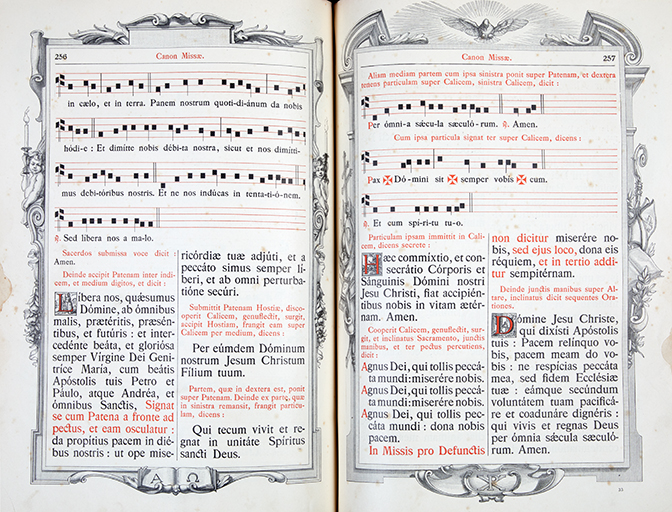 256
Canon Missæ.
in cælo, et in terra. Panem nostrum quoti-di-ánum da nobis
hódi-e : Et dimitte nobis débi-ta nostra, sicut et nos dimítti-
mus debi-tóribus nostris. Et ne nos indúcas in tenta-ti-ó-nem.
℟. Sed libera nos a ma-lo.
Sacerdos submissa voce dicit :
Amen.
Deinde accipit Patenam inter indi-
cem, et medium digitos, et dicit :
Líbera nos, quǽsumus
Dómine, ab ómnibus
malis, prætéritis, præsén-
tibus, et futúris : et inter-
cedénte beáta, et gloriósa
semper Vírgine Dei Geni-
tríce María, cum beátis
Apóstolis tuis Petro et
Páulo, atque Andréa, et
ómnibus Sanctis, Signat
se cum Patena a fronte ad
pectus, et eam osculatur :
da propítius pacem in dié-
bus nostris : ut ope mise-
ricórdiæ tuæ adjúti, et a
peccáto simus semper lí-
beri, et ab omni perturba-
tióne secúri.
Submittit Patenam Hostiæ, discoo-
perit Calicem, genuflectit, surgit,
accipit Hostiam, frangit eam super
Calicem per medium, dicens :
Per eúmdem Dóminum
nostrum Jesum Christum
Fílium tuum.
Partem, quæ in dextera est, ponit
super Patenam. Deinde ex parte, quæ
in sinistra remansit, frangit particu-
lam, dicens :
Qui tecum vivit et re-
gnat in unitáte Spíritus
sancti Deus.
Α Ω
Canon Missæ.
257
Aliam mediam partem cum ipsa sinistra ponit super Patenam, et dextera
tenens particulam super Calicem, sinistra Calicem, dicit :
Per ómni-a sǽcu-la sæculó-rum. ℟. Amen.
Cum ipsa particula signat ter super Calicem, dicens :
Pax ✠ Dó-mini sit ✠ semper vobís ✠ cum.
℟. Et cum spi-ri-tu tu-o.
Particulam ipsam immittit in Cali-
cem, dicens secrete :
Hæc commíxtio, et con-
secrátio Córporis et
Sánguinis Dómini nostri
Jesu Christi, fiat accipién-
tibus nobis in vitam ætér-
nam. Amen.
Cooperit Calicem, genuflectit, sur-
git, et inclinatus Sacramento, junctis
manibus, et ter pectus percutiens,
dicit :
Agnus Dei, qui tollis peccá-
ta mundi: miserére nobis.
Agnus Dei, qui tollis peccá-
ta mundi: miserére nobis.
Agnus Dei, qui tollis pec-
cáta mundi : dona nobis
pacem.
In Missis pro Defunctis
non dicitur miserére no-
bis, sed ejus loco, dona eis
réquiem, et in tertio addi-
tur sempitérnam.
Deinde junctis manibus super Al-
tare, inclinatus dicit sequentes Ora-
tiones.
Dómine Jesu Christe,
qui dixísti Apóstolis
tuis : Pacem relínquo vo-
bis, pacem meam do vo-
bis : ne respícias peccáta
mea, sed fidem Ecclésiæ
tuæ : eámque secúndum
voluntátem tuam pacificá-
re et coadunáre dignéris :
qui vivis et regnas Deus
per ómnia sǽcula sæculó-
rum. Amen.